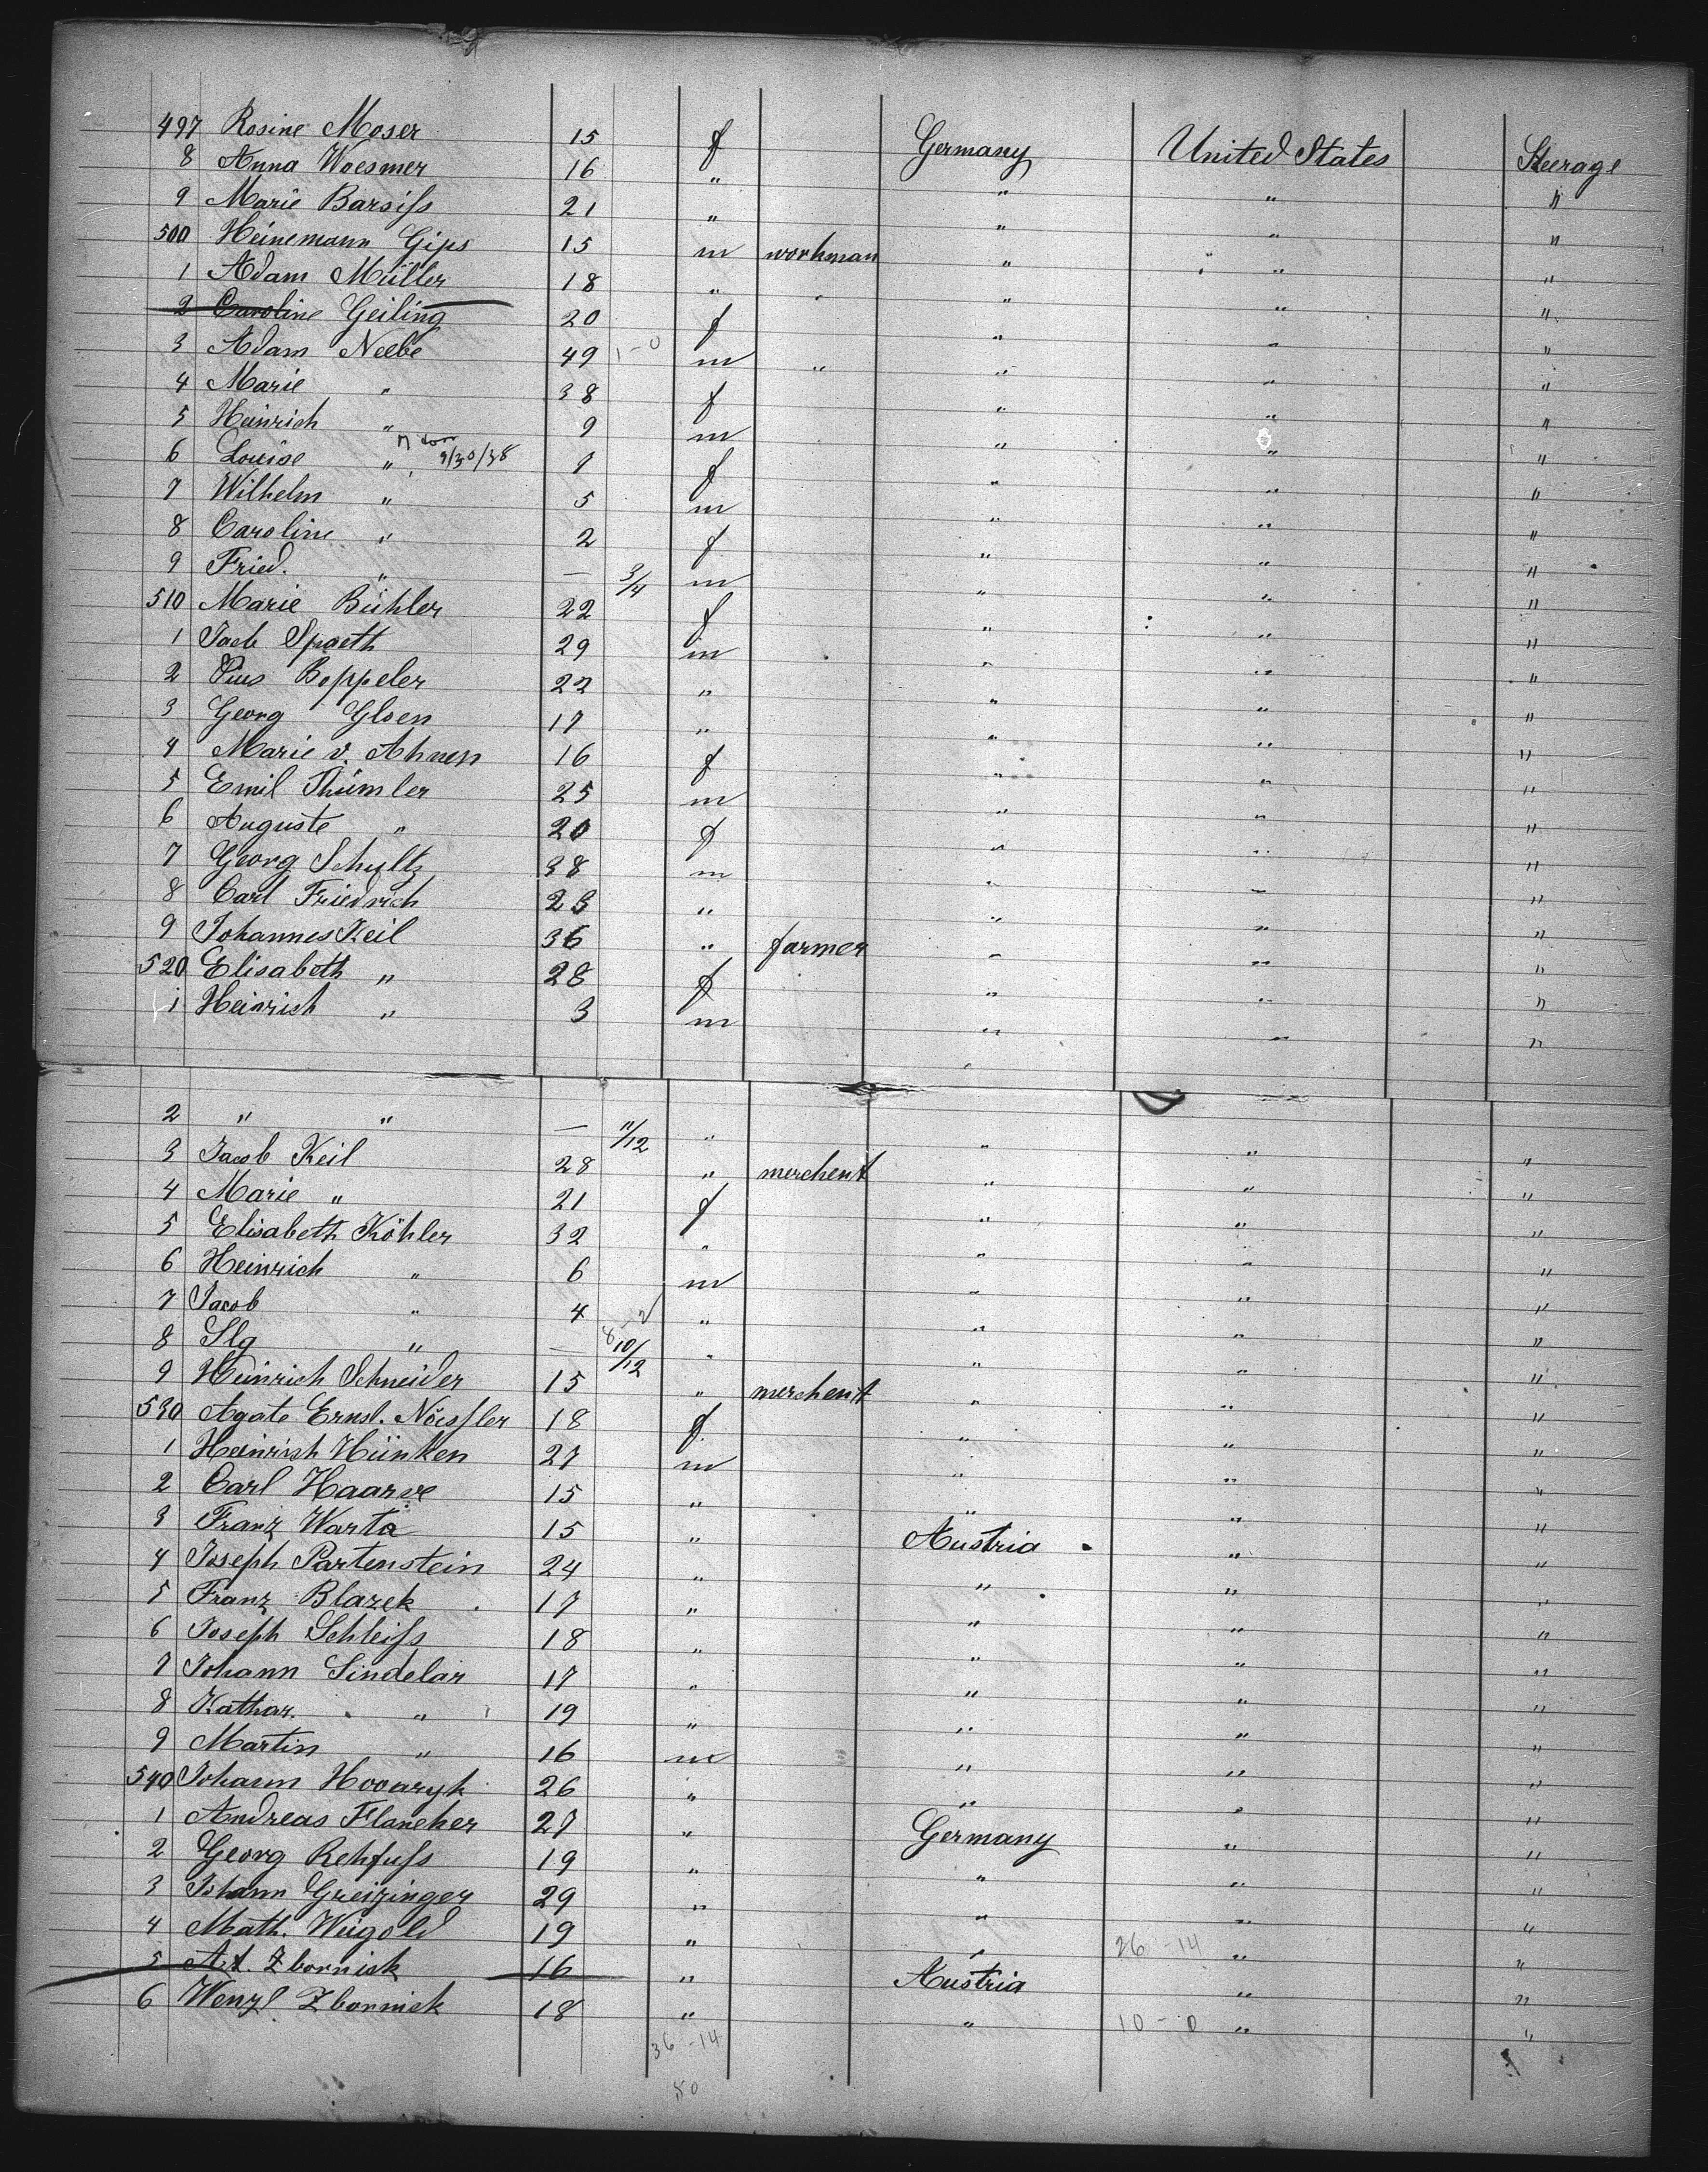 497 Rosine Moser 15 f Germany United States Steerage
8 Anna Woesmer 16 " " " "
9 Marie Barsiſs 21 " " " "
500 Heinemann Gips 15 m workman " " "
1 Adam Müller 18 " " " " "
2 Caroline Geiling 20 f " " "
3 Adam Neebe 49 1-0 m " " " "
4 Marie " 38 f " " "
5 Heinrich " 9 m " " "
6 Louise " 9/30/38 7 f " " "
7 Wilhelm " 5 m " " "
8 Caroline " 2 f " " "
9 Fried. " — 3/4 m " " "
510 Marie Bühler 22 f " " "
1 Jacb Spaeth 29 m " " "
2 Pius Beppeler 22 " " " "
3 Georg Gloen 17 " " " "
4 Marie v. Ahnen 16 f " " "
5 Emil Thümler 25 m " " "
6 Auguste " 20 f " " "
7 Georg Schultz 38 m " " "
8 Carl Friedrich 23 " " " "
9 Johannes Keil 36 " farmer " " "
520 Elisabeth " 28 f " " "
1 Heinrich " 3 m " " "
2 " " — 11/12 " " " "
3 Jacob Keil 28 " merchent " " "
4 Marie " 21 f " " "
5 Elisabeth Köhler 32 " " " "
6 Heinrich " 6 m " " "
7 Jacob " 4 " " " "
8 Slg " — 10/12 " " " "
9 Heinrich Schneider 15 " merchent " " "
530 Agate Ernst. Nöissler 18 f " " "
1 Heinrich Hünken 27 m " " "
2 Carl Haarve 15 " " " "
3 Franz Warta 15 " Austria " "
4 Joseph Partenstein 24 " " " "
5 Franz Blazek 17 " " " "
6 Joseph Schleiſs 18 " " " "
7 Johann Sindelar 17 " " " "
8 Kathar. " 19 " " " "
9 Martin " 16 m " " "
540 Johann Hovaryk 26 " " " "
1 Andreas Flancher 27 " Germany " "
2 Georg Rehfuſs 19 " " " "
3 Johann Greizinger 29 " " " "
4 Math. Weigold 19 " " 26-14 " "
5 Zbornick 16 " Austria " "
6 Wenzl Zbornick 18 " " 10-0 " "
36-14
50